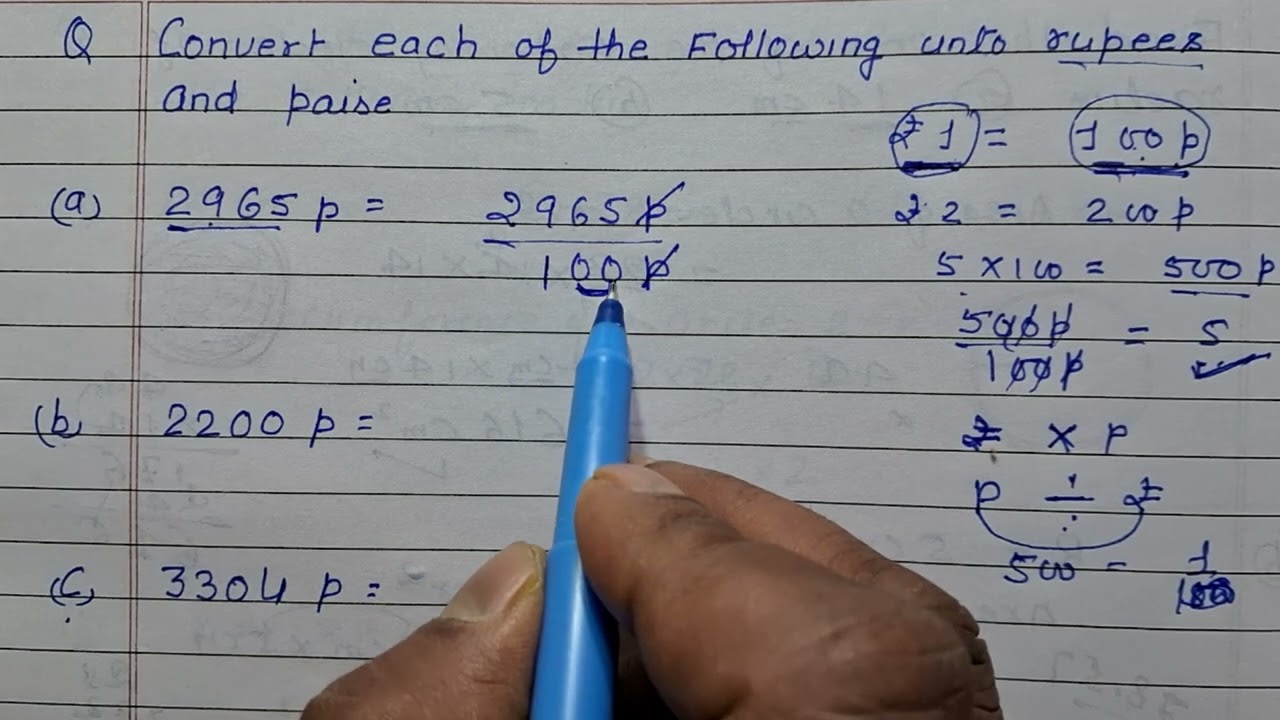 Q Convert each of the Following unto rupees
and paise
₹ 1 = 100 p
(a) 2965 p = 2965 p
100 p
₹ 2 = 200 p
5 × 100 = 500 p
500p
100p = 5
(b 2200 p =
₹ × p
p ÷ ₹
500 - 1
(c) 3304 p =